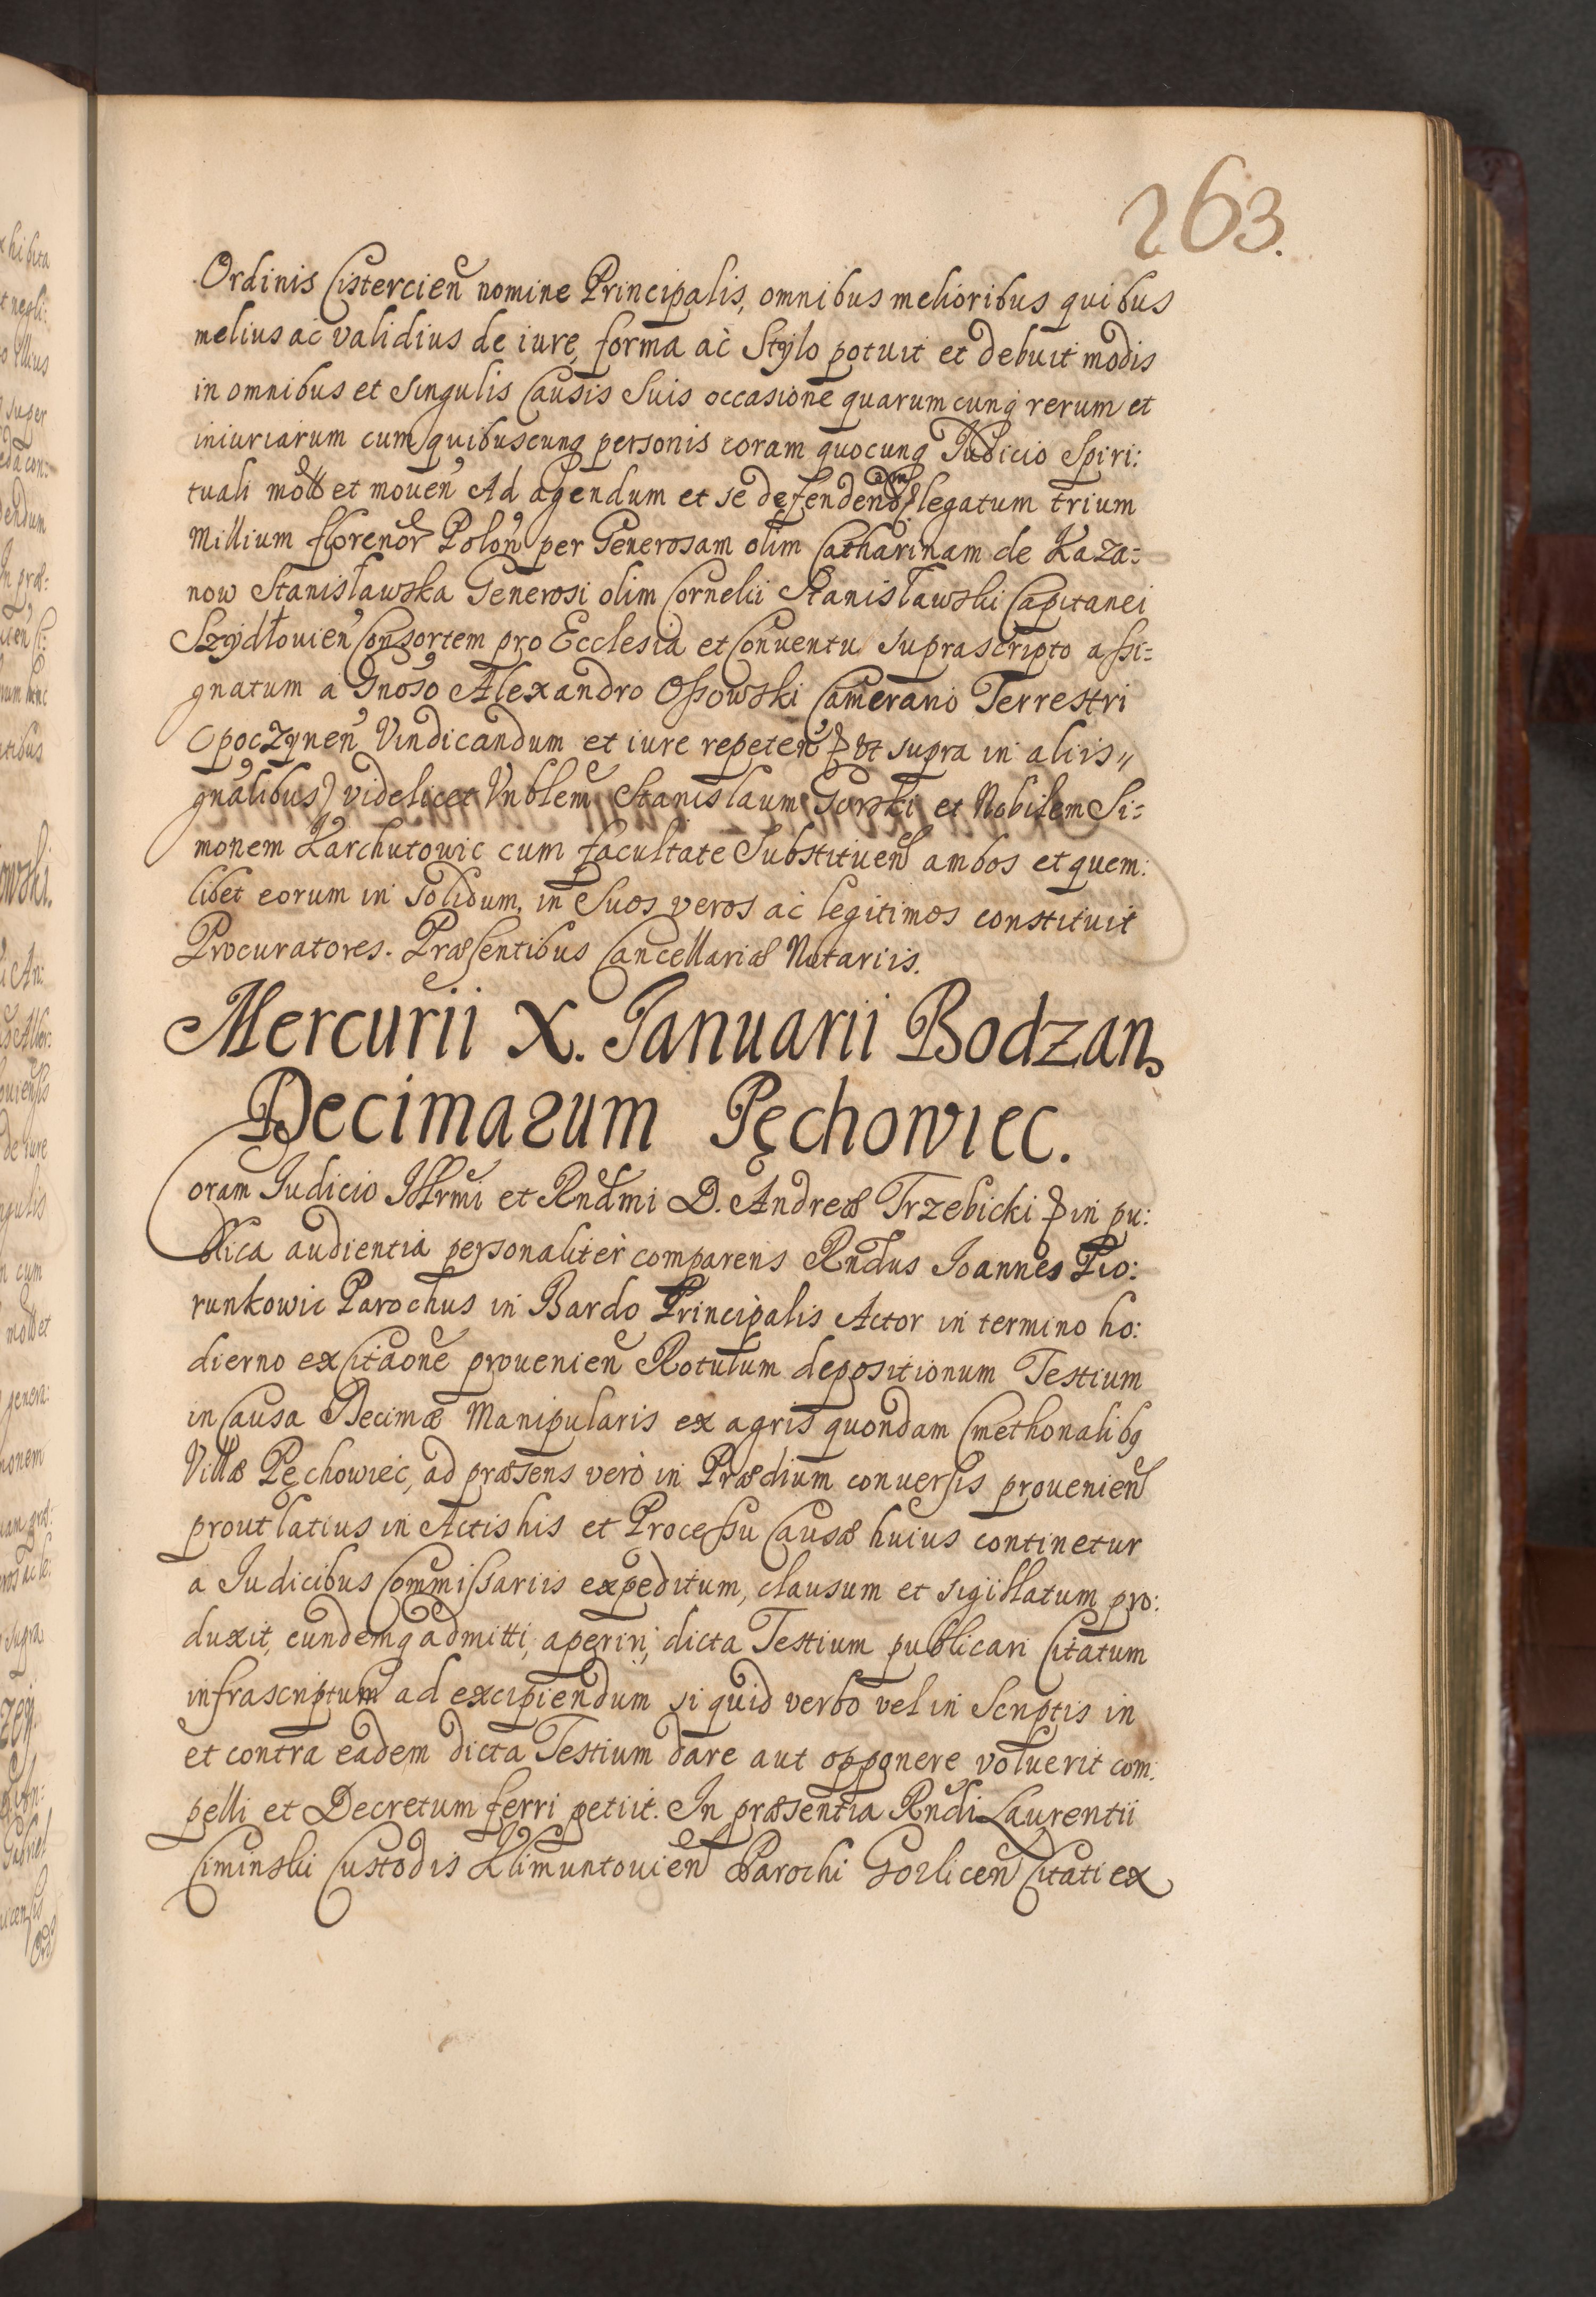 263.
Ordinis Cistercien̄ nomine Principalis, omnibus melioribus quibus
melius ac validius de iure, forma ac Stylo potuit et debuit modis
in omnibus et singulis Causis Suis occasione quarumcunq rerum et
iniuriarum cum quibuscunq personis coram quocunq Iudicio Spiri:
tuali mott et mouen̄ Ad agendum et se defendend legatum trium
Millium floreno℟ Polon̄ per Generosam olim Catharinam de Kaza:
now Stanisławska Generosi olim Cornelii Stanisławski Capitanei
Szydłouien̄ Consortem pro Ecclesia et Conuentu suprascripto assi:
gnatum a Gnoso Alexandro Ossowski Camerario Terrestri
Opoczynen̄ Vindicandum et iure repeten̄ ut supra in aliis
gnalibus) videlicet Vnblem Stanislaum Gorski et Nobilem Si:
monem Karchutowic cum facultate Substituen̄ ambos et quem:
libet eorum in solidum, in Suos veros ac legitimos constituit
Procuratores. Præsentibus Cancellariæ Notariis.
Mercurii X. Ianuarii Bodzan,
Decimarum Pęchowiec.
Coram Iudicio Illrmi et Rndmi D. Andreæ Trzebicki in pu:
blica audientia personaliter comparens Rndus Ioannes Pio:
runkowic Parochus in Bardo Principalis Actor in termino ho:
dierno ex Citaone prouenien̄ Rotulum depositionum Testium
in Causa Decimæ Manipularis ex agris quondam Cmethonalibq
Villæ Pęchowiec, ad præsens vero in Prædium conuersis prouenien̄
prout latius in Actis his et Processu Causæ huius continetur
a Iudicibus Commissariis expeditum, clausum et sigillatum pro:
duxit, eundemq admitti, aperiri, dicta Testium publicari Citatum
infrascriptum ad excipiendum si quid verbo vel in Scriptis in
et contra eadem dicta Testium dare aut opponere voluerit com:
pelli et Decretum ferri petiit. In præsentia Rndi Laurentii
Ciminski Custodis Klimuntouien̄ Parochi Gorlicen̄ Citati ex